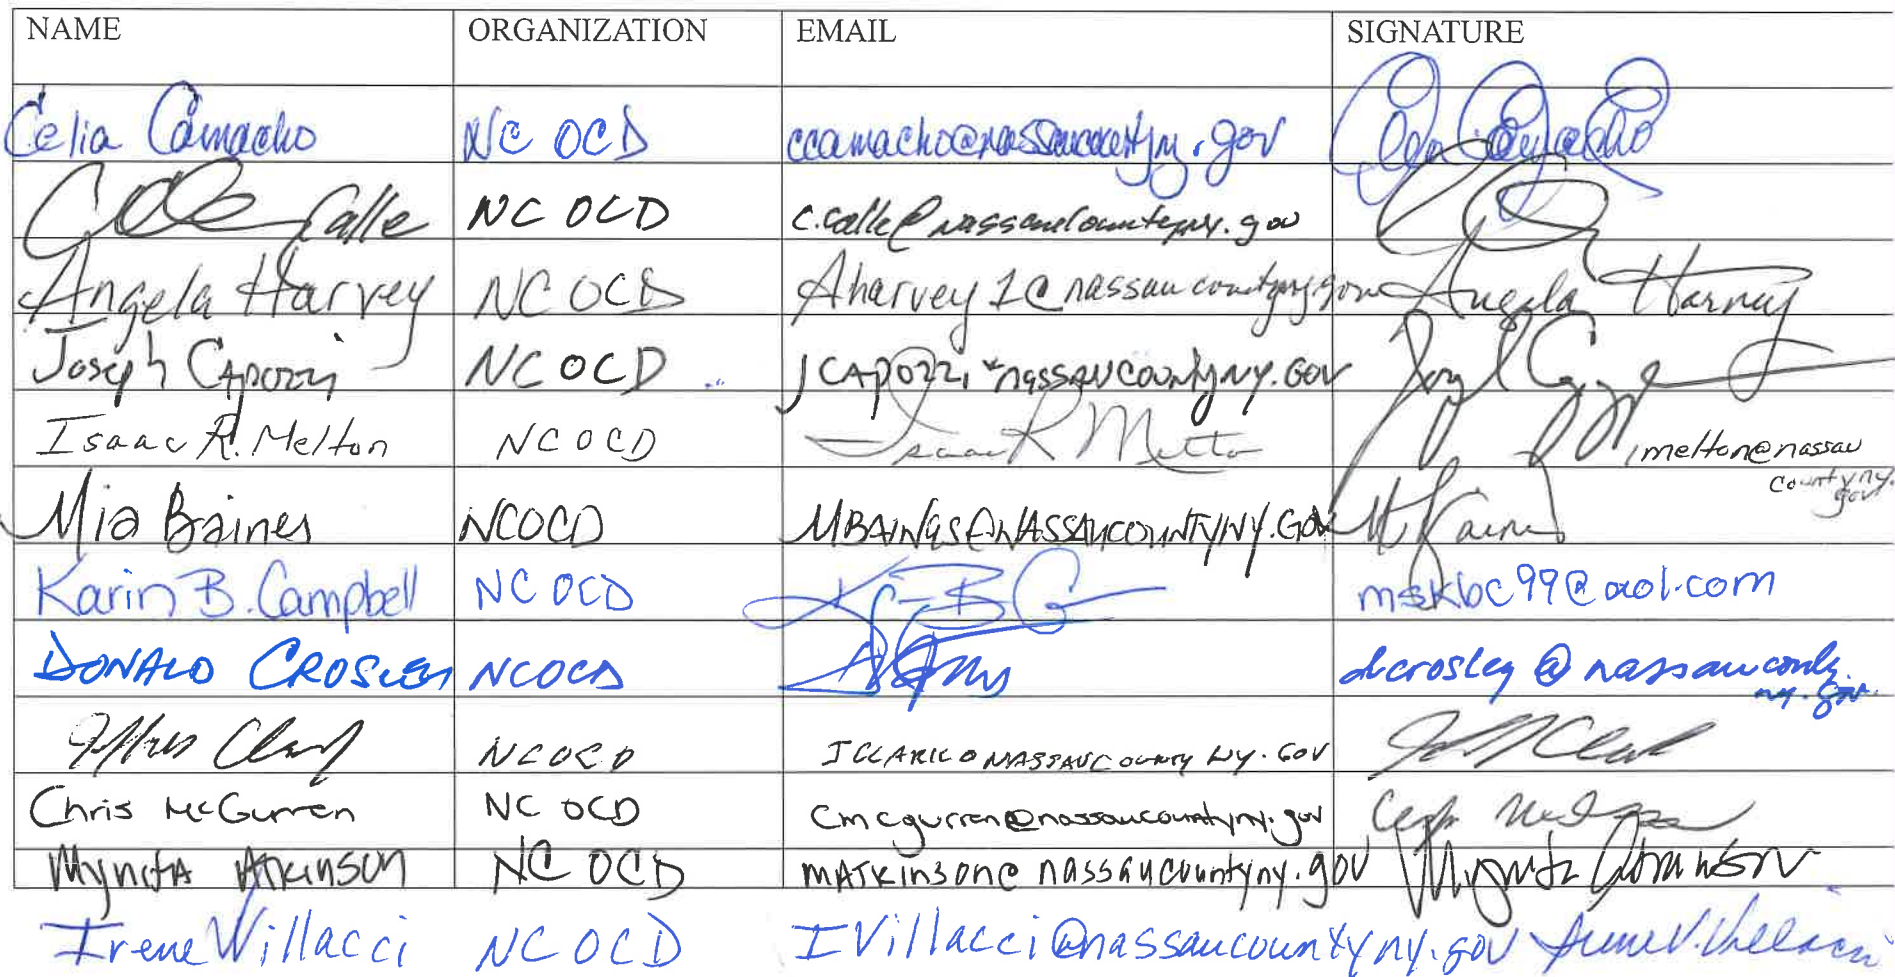 NAME ORGANIZATION EMAIL SIGNATURE
Celia Camacho NC OCD ccamacho@nassaucountyny.gov Celia Camacho
Calle NC OCD c.calle@nassaucountyny.gov
Angela Harvey NC OCD Aharvey1@nassaucountyny.gov Angela Harvey
Joseph Capozzi NC OCD JCAPOZZI nassaucountyny.GOV
Isaac R. Melton NC OCD Isaac R Melton imelton@nassau
countyny.
gov
Mia Baines NCOCD MBAINES@NASSAUCOUNTYNY.GOV M Baines
Karin B. Campbell NC OCD mskbc99@aol.com
DONALD CROSLEY NCOCD dcrosley@nassaucounty
ny.gov
Clark NCOCD JCLARK@NASSAUCOUNTYNY.GOV
Chris McGurren NC OCD cmcgurren@nassaucountyny.gov
Mynita Atkinson NC OCD MATKINSON@nassaucountyny.gov Mynita Atkinson
Irene Villacci NC OCD IVillacci@nassaucountyny.gov Irene V. Villacci